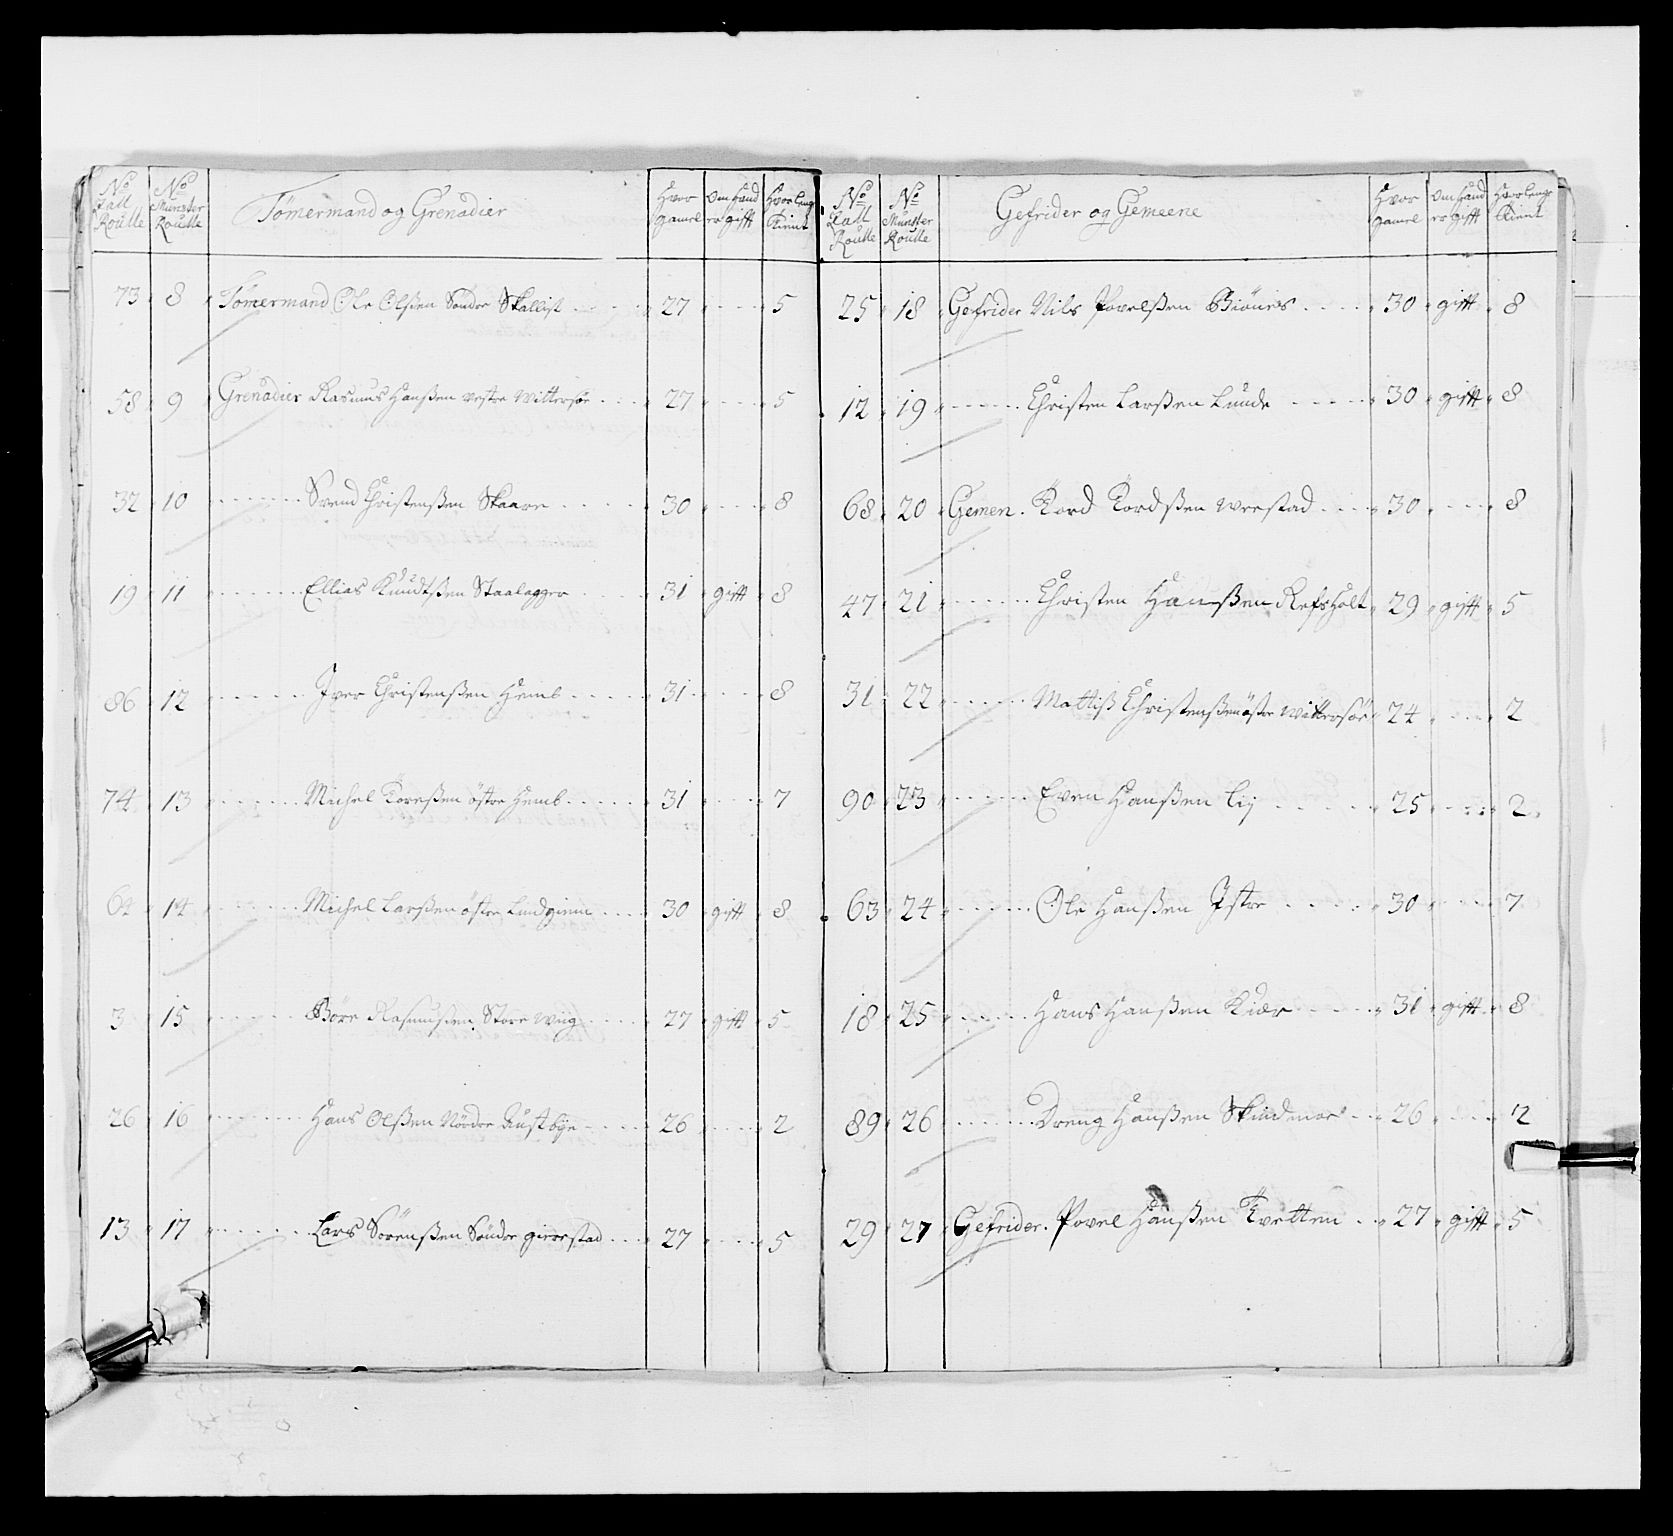 No Lall Roulle | No Munster Roulle | Tömermand og Grenadier | Hvor gamel | Om hand er gifft | Hvor lenge tient
73 8 Tömermand Ole Olsßen Söndre Skallist 27 5
58 9 Grenadier Rasmus Hanßen vestre Wittersöe 27 5
32 10 Svend Christenßen Skaare 30 8
19 11 Ellias Knudtßen Staalagger 31 gifft 8
86 12 Jver Christenßen Hemb 31 8
74 13 Michel Toreßen östre Hemb 31 7
64 14 Michel Larßen östre Lindgiem 30 gifft 8
3 15 Börre Rasmusßen Store Wiig 27 gifft 5
26 16 Hans Olßen Nördre Austbye 26 2
13 17 Lars Sörenßen Söndre gierestad 27 5
No Lall Roulle | No Munster Roulle | Gefrider og Gemeene | Hvor gamel | Om hand er gifft | Hvor lenge tient
25 18 Gefrider Nils Povelßen Biönnes 30 gifft 8
12 19 Christen Larßen Lunde 30 gifft 8
68 20 Gemen. Tord Tordßen Werstad 30 8
47 21 Christen Hanßen Refsholt 29 gifft 5
31 22 Mattiß Christenßen östre Wittersöe 24 2
90 23 Even Hanßen Lij 25 2
63 24 Ole Hanßen Istre 30 7
18 25 Hans Hanßen Kiær 31 gifft 8
89 26 Dreng Hanßen Skindmoe 26 2
29 27 Gefrider. Povel Hanßen Tvetten 27 gifft 5